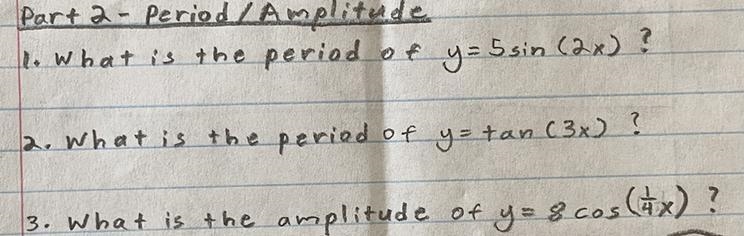 Part 2 - Period/Amplitude
1. What is the period of y = 5 sin (2x) ?
2. What is the period of y = tan (3x) ?
3. What is the amplitude of y = 8 cos(1/4x) ?